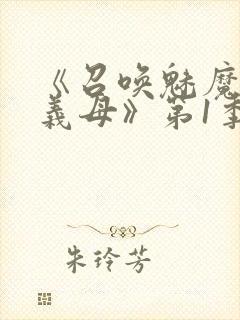 《召唤魅魔
義母》第1季
朱玲芳